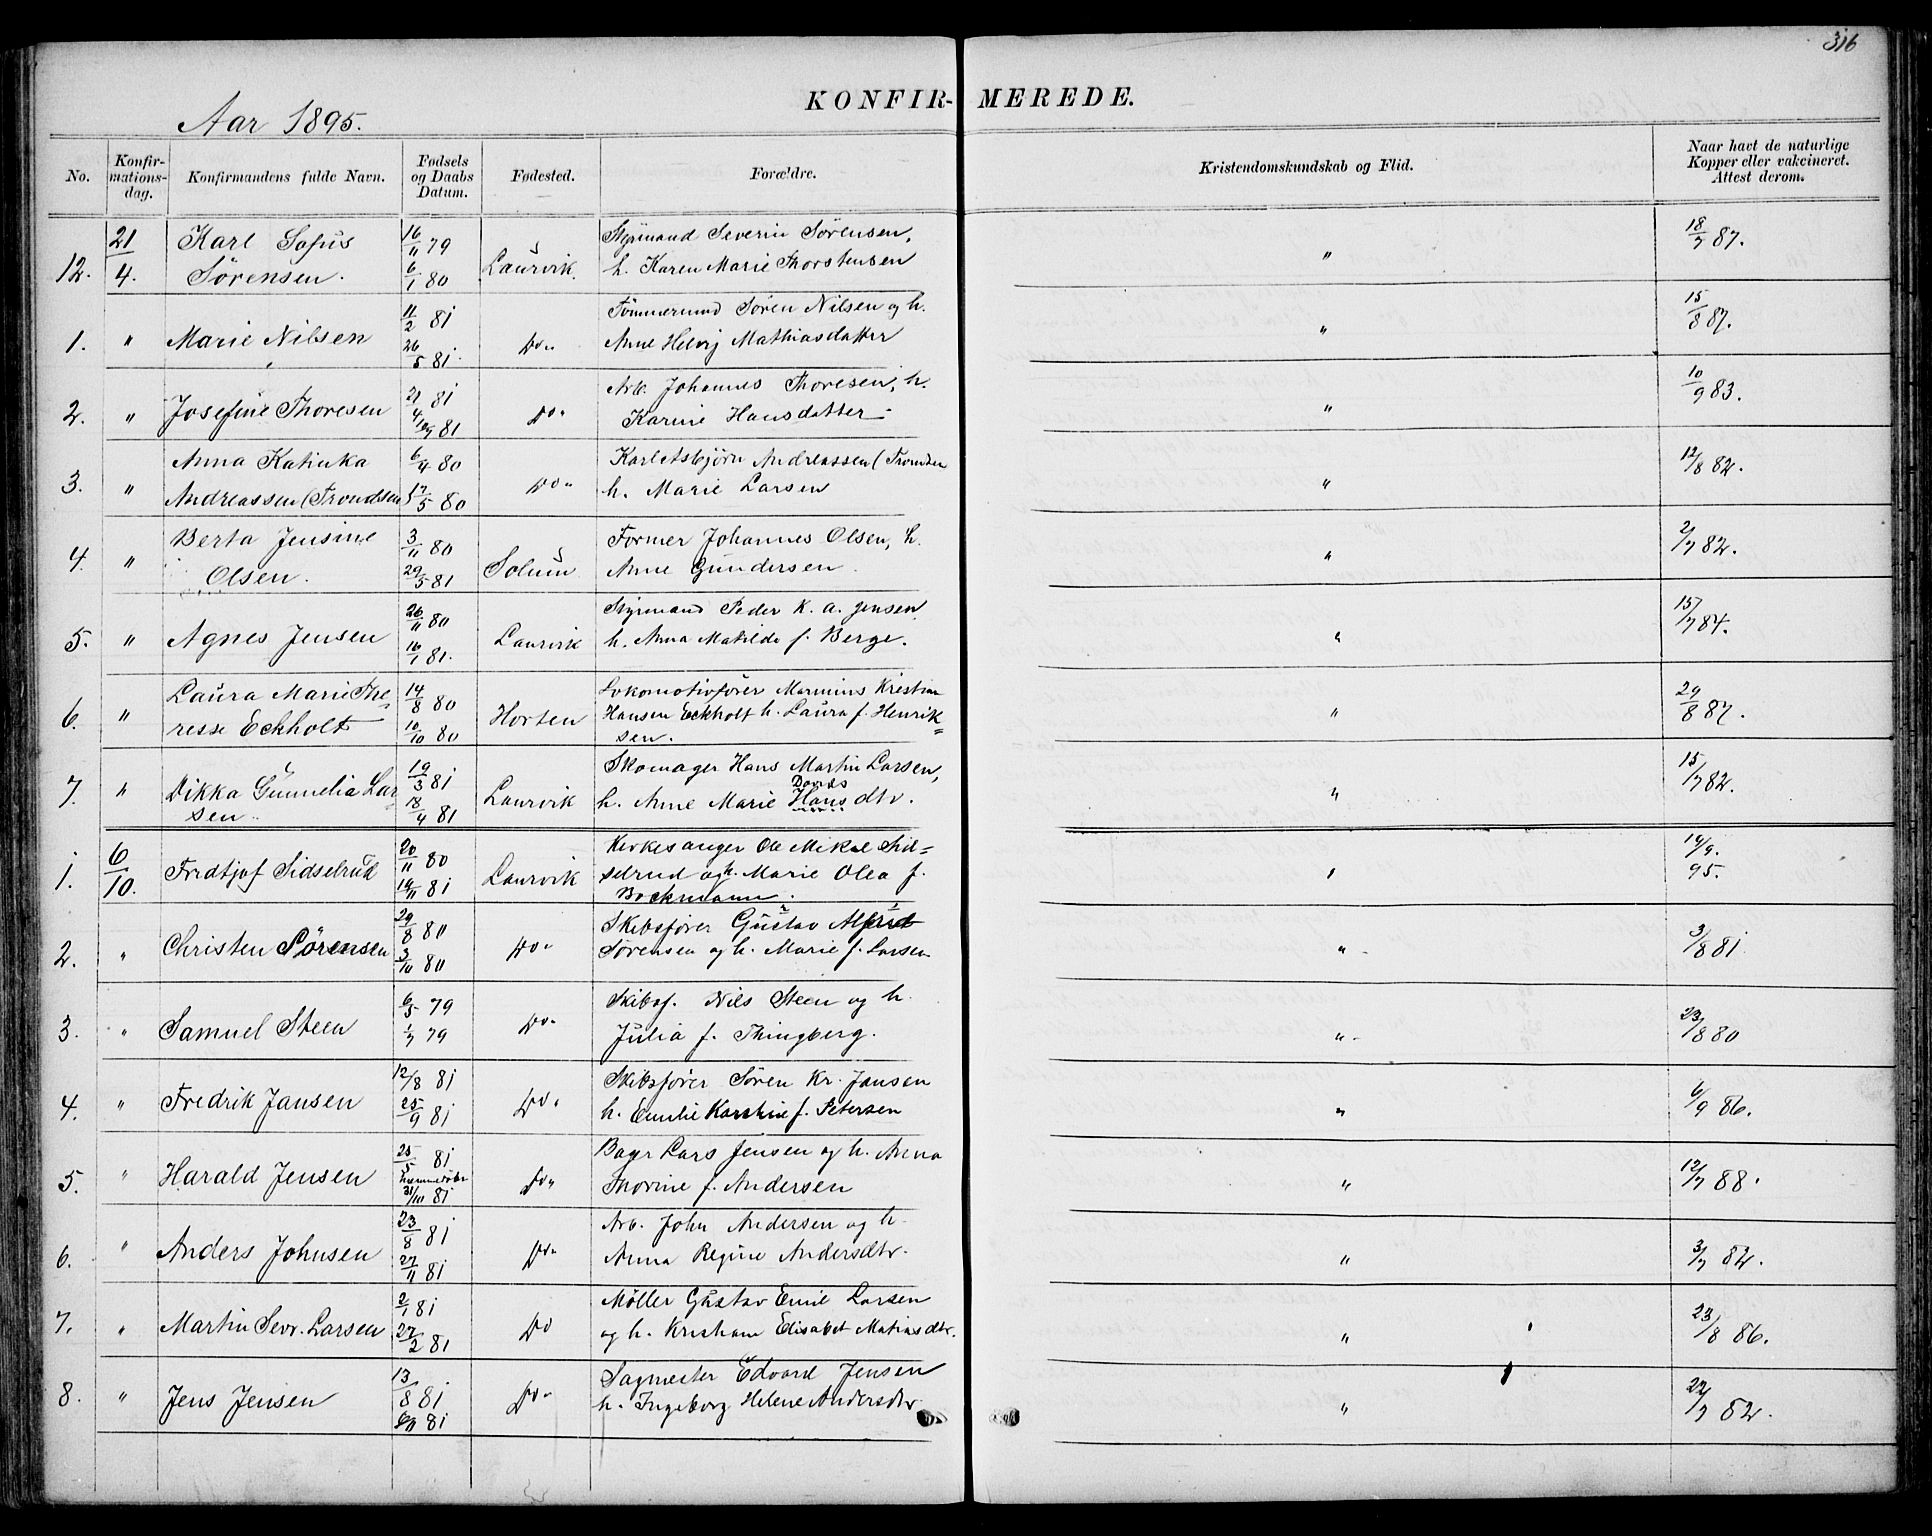 316
KONFIR-MEREDE.
Aar 1895.
No.
Konfir-
mations-
dag.
Konfirmandens fulde Navn.
Fødsels
og Daabs
Datum.
Fødested.
Forældre.
Kristendomskundskab og Flid.
Naar havt de naturlige
Kopper eller vakcineret.
Attest derom.
12. 21/4. Karl Sofus Sørensen. 16/11 79 6/1 80 Laurvik Styrmand Severin Sørensen,
h. Karen Marie Thorstensen " 18/7 87.
1. " Marie Nilsen 11/2 81 26/5 81. Do. Tømmermd Søren Nilsen og h.
Anne Helvig Mathiasdatter " 15/8 87.
2. " Josefine Thoresen 81 81 Do. Arb. Johannes Thoresen, h.
Karine Hansdatter " 10/9 83.
3. " Anna Katinka
Andreassen (Trondsen) 6/4 80 17/5 80 Do. Karl Asbjørn Andreassen (Trondsen
h. Marie Larsen " 12/8 82.
4. " Berta Jensine
Olsen. 3/11 80 29/5 81 Solum Former Johannes Olsen, h.
Anne Gundersen. " 2/7 82.
5. " Agnes Jensen 26/11 80 16/1 81. Laurvik Styrmand Peder K. A. Jensen
h. Anna Matilde f. Berge. " 15/7 84.
6. " Laura Marie The=
resse Eckholt 14/8 80 10/10 80 Horten Lokomotivfører Marinius Kristian
Hansen Eckholt h. Laura f. Henrik=
sen. " 29/8 87.
7. " Dikka Gunnelia Lar
sen. 19/3 81 18/4 81 Laurvik Skomager Hans Martin Larsen,
Davids
h. Anne Marie Hans dtr. " 15/7 82.
1. 6/10. Fridtjof Sidselrud 20/11 80 81 Laurvik Kirkesanger Ole Mikal Sid=
selrud og h. Marie Olea f.
Bockmann. " 19/9. 95.
2. " Christen Sørensen 29/8 80 3/10 80 Do. Skibsfører Gustav Alfred
Sørensen og h. Marie f. Larsen " 3/8 81
3. " Samuel Steen 6/5 79 1/7 79 Do. Skibsf. Nils Steen og h.
Julia f. Thingberg. " 23/8 80
4. " Fredrik Jansen 12/8 81 25/9 81 Do. Skibsfører Søren Kr. Jansen
h. Emilie Karstine f. Petersen " 6/9 86.
5. " Harald Jensen 25/5 81 31/10 81 Do. Bager Lars Jensen og h. Anna
Thorine f. Andersen " 12/7 88.
6. " Anders Johnsen 23/8 81 27/11 81 Do. Arb. John Andersen og h.
Anna Regine Andersdtr. " 3/7 82.
7. " Martin Sevr. Larsen 2/1 81 27/2 81 Do Møller Gustav Emil Larsen
og h. Kristiane Elisabet Matiasdtr. " 23/8 86.
8. " Jens Jensen 13/8 81 81 Do. Sagmester Edvard Jensen
h. Ingeborg Helene Andersdtr " 22/7 82.